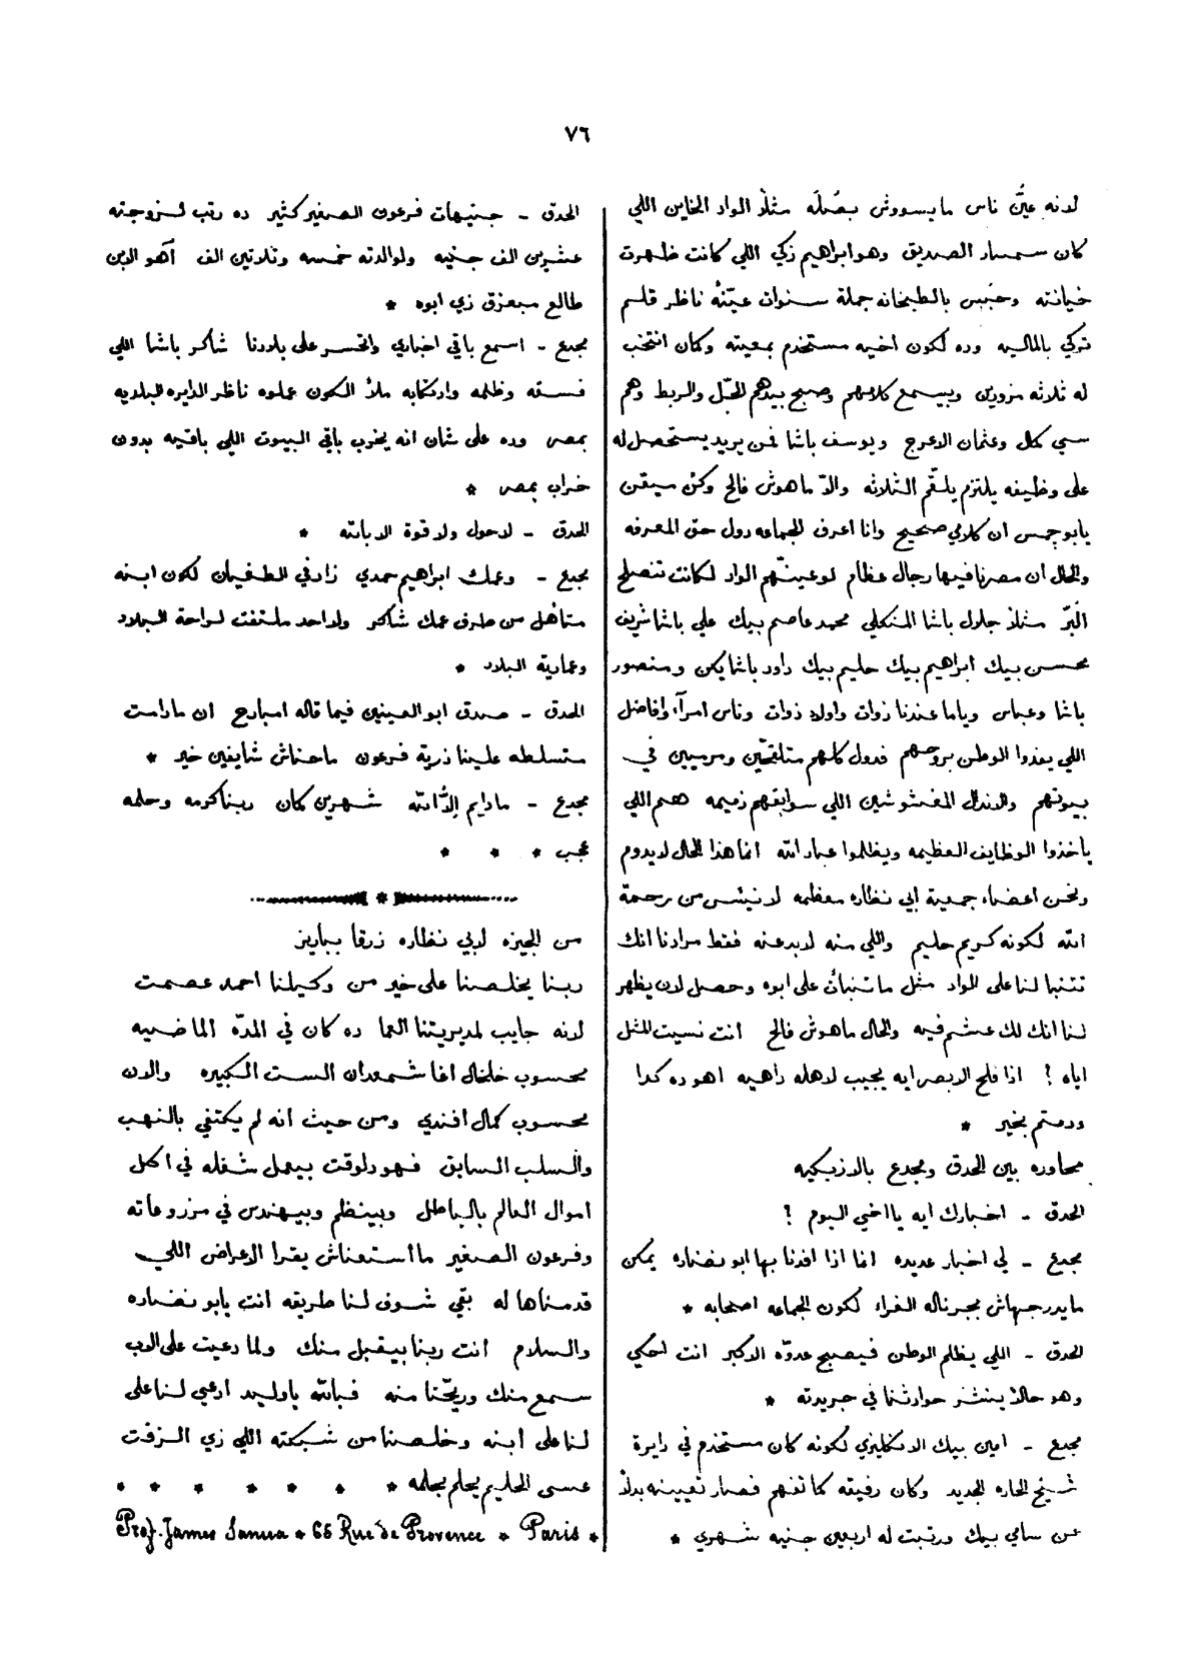 ٧٦
لانه عيَّن ناس مايسووش بصله مثلا الواد الخاين اللي
كان سمسار الصديق وهو ابراهيم زكي اللي كانت ظهرت
خيانته وحبس بالطبخانه جملة سنوات عيّنه ناظر قلم
تركي بالماليه وده لكون اخيه مستخدم بمعيته وكمان انتخب
له ثلاثه مزورين وبيسمع كلامهم وصبح بيدهم الحل والربط وهم
سي كمال وعثمان الاعرج ويوسف باشا فمن يريد يستحصل له
على وظيفه يلتزم يلقّم الثلاثه والا ماهوش فالح وكن ميقن
يابو جمس ان كلامي صحيح وانا اعرف الجماعه دول حق المعرفه
والحال ان مصرنا فيها رجال عظام لو عينّهم الواد لكانت تنصلح
البرّ مثلا جلال باشا المنكلي محمد عاصم بيك علي باشا شريف
محسن بيك ابراهيم بيك حليم بيك داود باشا يكن ومنصور
باشا وعباس وياما عندنا ذوات واولاد ذوات وناس امرآء وافاضل
اللي يفدوا الوطن بروحهم فدول كلهم متلقحين ومرميين في
بيوتهم والاندال المغشوشين اللي سوابقهم ذميمه هم اللي
ياخذوا الوظايف العظيمه ويظلموا عباد الله انما هذا الحال لا يدوم
ونحن اعضاء جمعية ابي نظاره معظمه لا نيئس من رحمة
الله لكونه كريم حليم واللي منه لابد عنه فقط مرادنا انك
تتنبا لنا على الواد مثل ما تنبات على ابوه وحصل لان يظهر
لنا انك لك عشم فيه والحال ماهوش فالح انت نسيت المثل
اياه ؟ اذا فلح الابصر ايه يجيب لاهله داهيه اهو ده كدا
ودمتم بخير *
محاوره بين الحدق ومجدع بالازبكيه
الحدق - اخبارك ايه يا اخي اليوم ؟
مجدع - لي اخبار عديده انما اذا افدنا بها ابو نضاره يمكن
مايدرجهاش بجرناله الغراء لكون الجماعه اصحابه *
الحدق - اللي يظلم الوطن فيصبح عدوّه الاكبر انت احكي
وهو حالا ينشر حوادثنا في جريدته *
مجدع - امين بيك الانكليزي لكونه كان مستخدم في دايرة
شيخ الحاره الجديد وكان رفيقه كاتفهم فصار تعيينه بدلا
عن سامي بيك ورتبت له اربعين جنيه شهري *
الحدق - جنيهات فرعون الصغير كثير ده رتب لزوجته
عشرين الف جنيه ولوالدته خمسه وثلاتين الف آهو الابن
طالع مبعزق زي ابوه *
مجدع - اسمع باقي اخباري واتحسر على بلادنا شاكر باشا اللي
فسقه وظلمه وارتكابه ملأ الكون عملوه ناظر الدايره البلديه
بمصر وده على شان انه يخرب باقي البيوت اللي باقيه بدون
خراب بمصر *
الحدق - لاحول ولا قوة الا بالله *
مجدع - وعمك ابراهيم حمدي زاد في الطغيان لكون ابنه
متأهل من طرف عمك شاكر ولا احد ملتفت لراحة البلاد
وعمارية البلاد *
الحدق - صدق ابو العينين فيما قاله امبارح ان مادامت
متسلطه علينا ذرية فرعون ماحناش شايفين خير *
مجدع - مادايم إلاّ الله شهرين كمان ربنا كرمه وحلمه
عجب * * *
من الجيزه لابي نظاره زرقا بباريز
ربنا يخلصنا على خير من وكيلنا احمد عصمت
لانه جايب لمديريتنا العما ده كان في المدّه الماضيه
محسوب خلخال اغا شمعدان الست الكبيره والان
محسوب كمال افندي ومن حيث انه لم يكتفي بالنهب
والسلب السابق فهو دلوقت بيعمل شغله في اكل
اموال العالم بالباطل وبينظم وبيهندس في مزروعاته
وفرعون الصغير ما استعناش يقرا الاعراض اللي
قدمناها له بقي شوف لنا طريقه انت يابو نضاره
والسلام انت ربنا بيقبل منك ولما دعيت على الاب
سمع منك وريّحنا منه فبالله ياوليد ادعي لنا على
لنا على ابنه وخلصنا من شبكته اللي زي الزفت
عسى الحليم يحلم بحلمه * * * * * * *
Prof. James Sanua * 65 Rue de Provence * Paris *